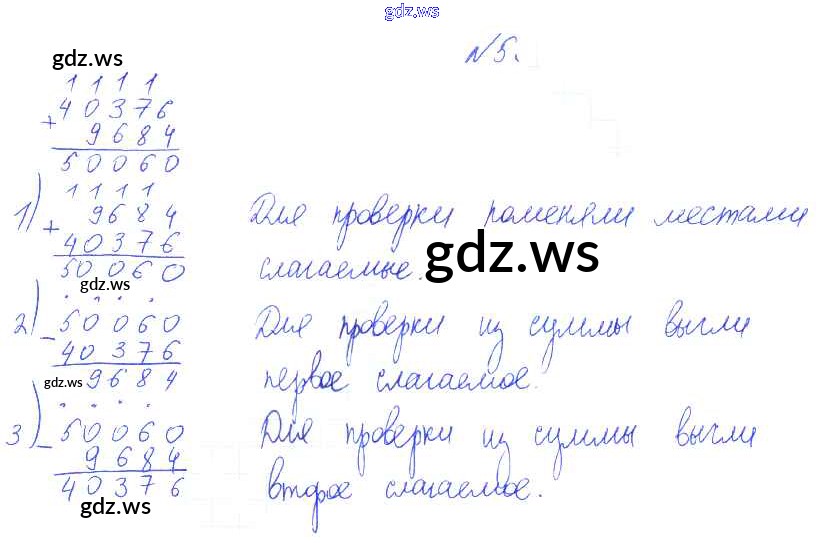 gdz.ws
№5.
gdz.ws
1 1 1 1
40376
+
9684
50060
1)
1 1 1 1
9684
+
40376
50060
Для проверки поменяли местами
слагаемые.
gdz.ws
gdz.ws
2)
....
50060
-
40376
9684
Для проверки из суммы вычли
первое слагаемое.
gdz.ws
3)
....
50060
-
9684
40376
Для проверки из суммы вычли
второе слагаемое.
gdz.ws